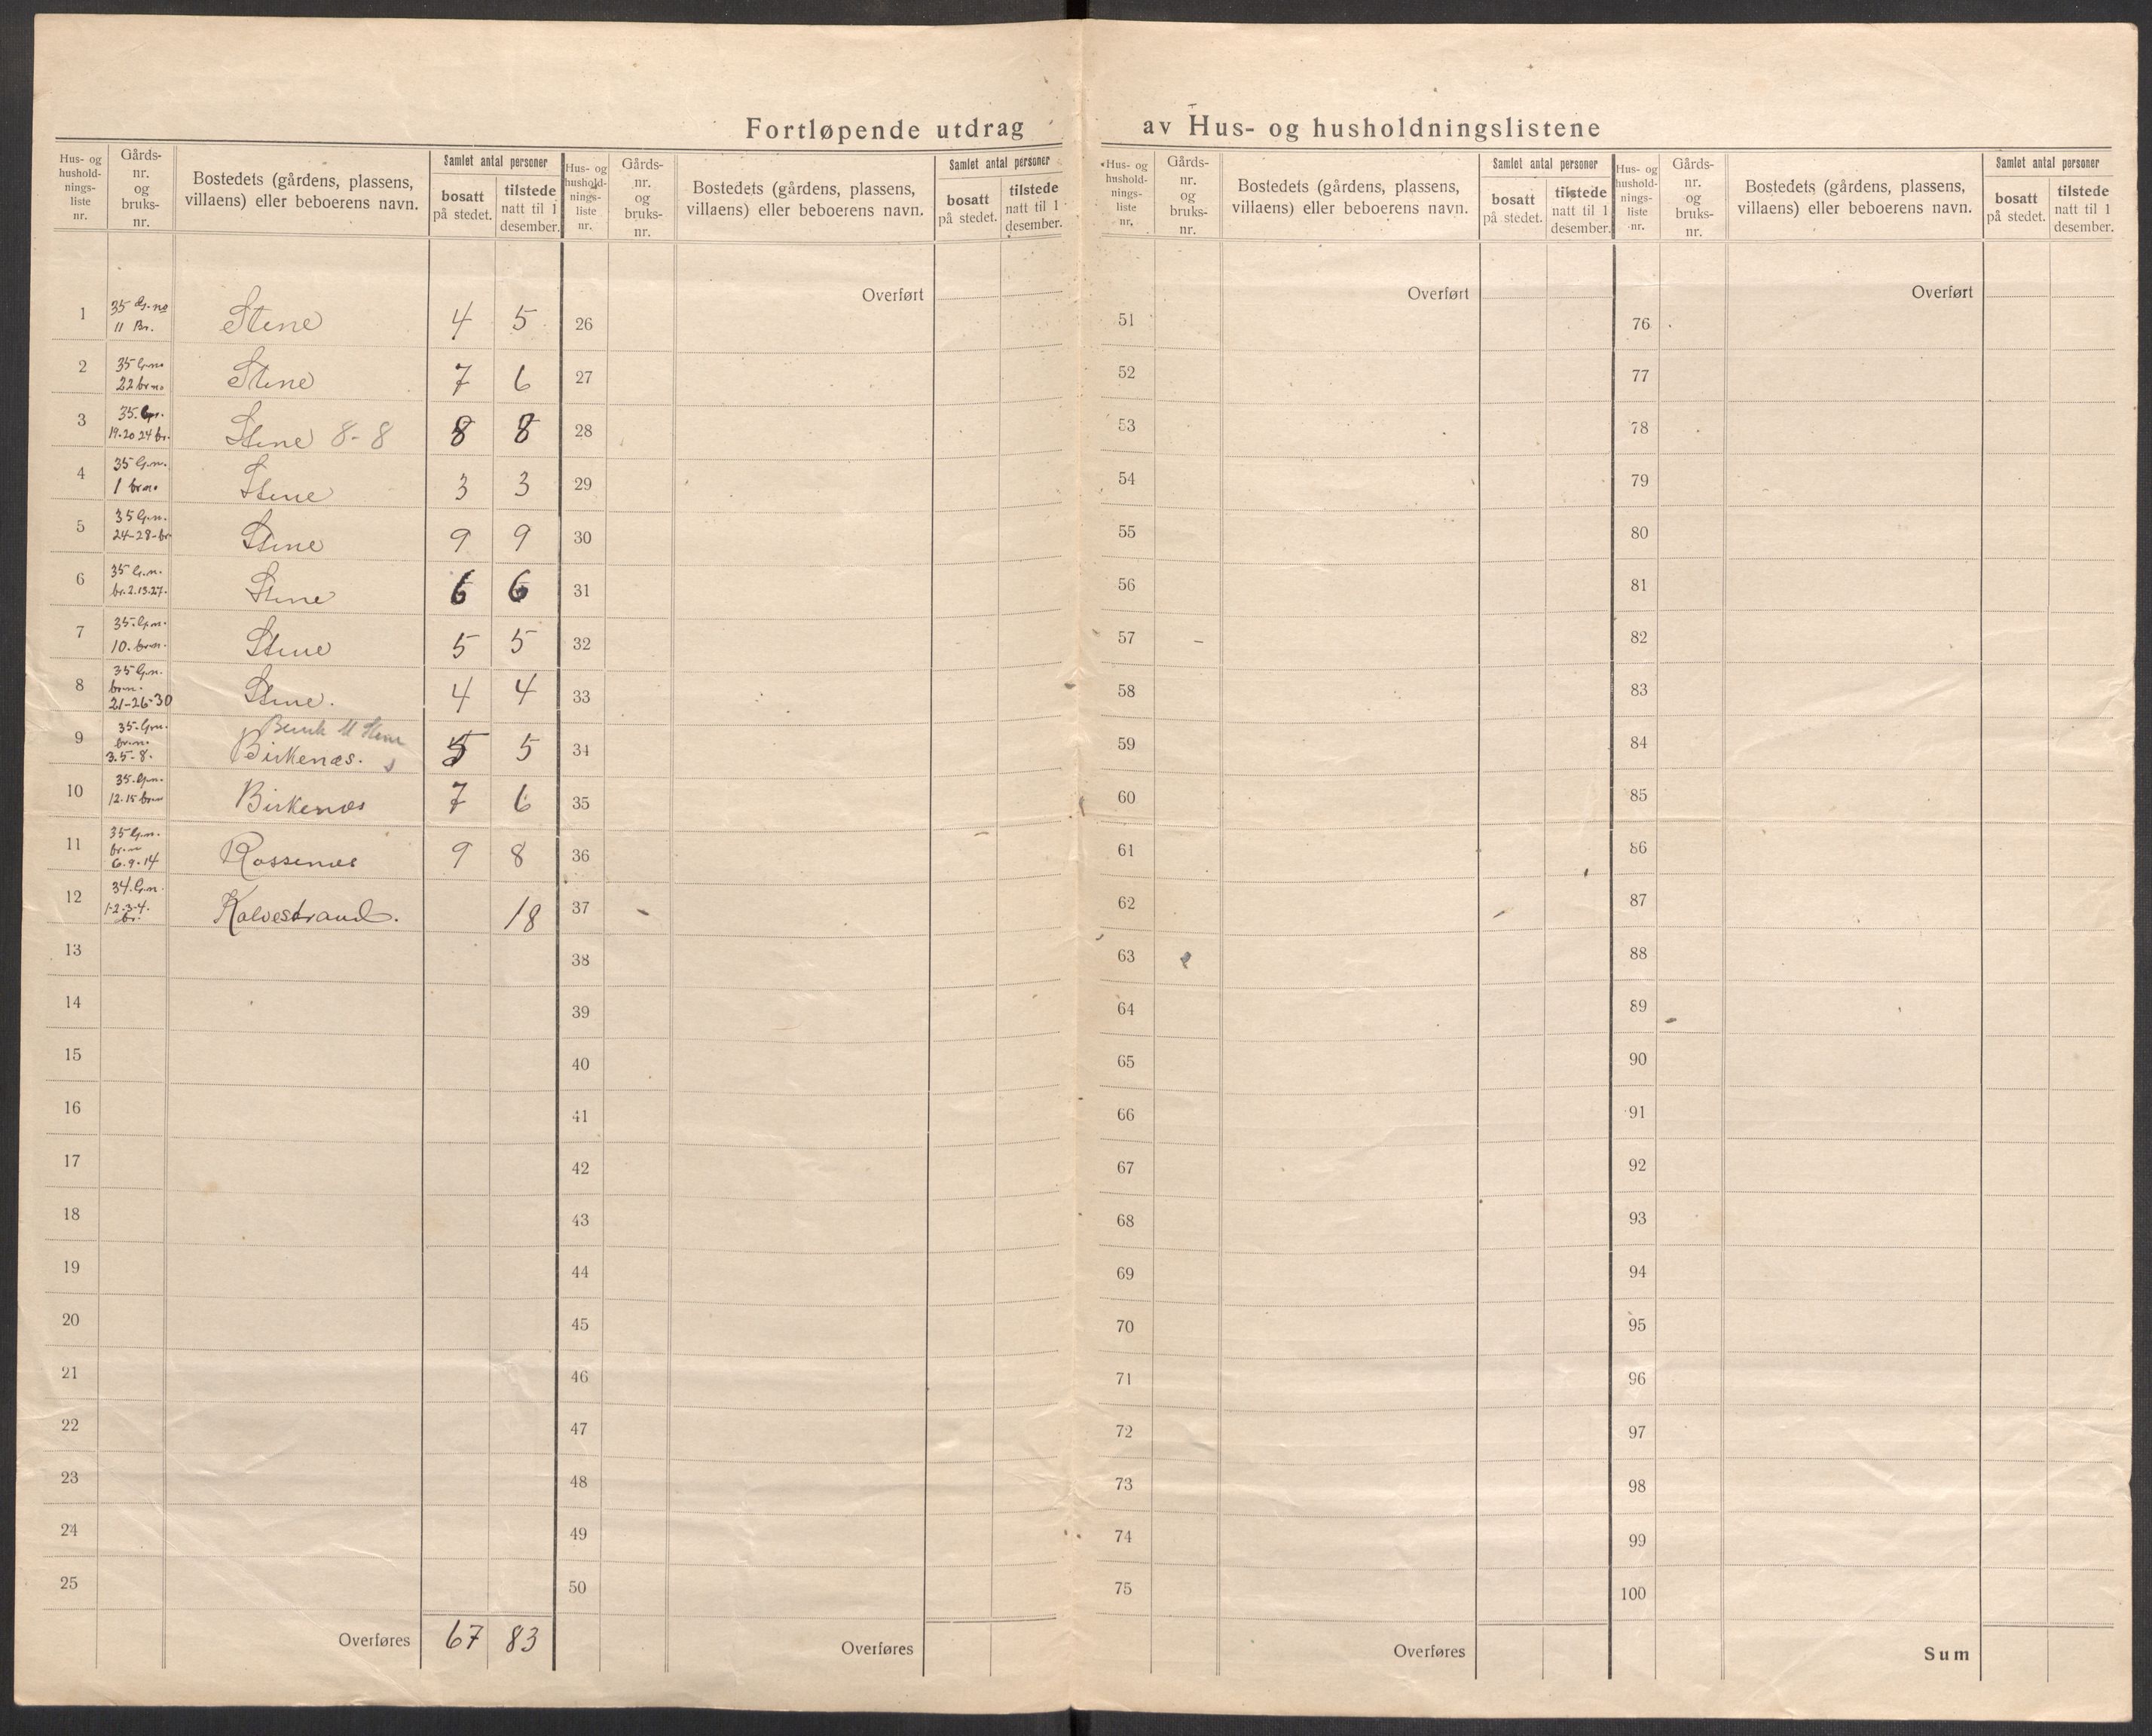 Fortløpende utdrag av Hus- og husholdningslistene
Hus- og hushold-nings-liste nr. | Gårds-nr. og bruks-nr. | Bostedets (gårdens, plassens, villaens) eller beboerens navn. | Samlet antal personer | bosatt på stedet. | tilstede natt til 1 desember.
Hus- og hushold-nings-liste nr. | Gårds-nr. og bruks-nr. | Bostedets (gårdens, plassens, villaens) eller beboerens navn. | Samlet antal personer | bosatt på stedet. | tilstede natt til 1 desember.
Hus- og hushold-nings-liste nr. | Gårds-nr. og bruks-nr. | Bostedets (gårdens, plassens, villaens) eller beboerens navn. | Samlet antal personer | bosatt på stedet. | tilstede natt til 1 desember.
Hus- og hushold-nings-liste nr. | Gårds-nr. og bruks-nr. | Bostedets (gårdens, plassens, villaens) eller beboerens navn. | Samlet antal personer | bosatt på stedet. | tilstede natt til 1 desember.
1 35 G.no 11 Br. Stene 4 5
2 35 G.no 22 br.no Stene 7 6
3 35. Gn. 19-20 24 br. Stene 8-8 8 8
4 35 G.n. 1 br.no Stene 3 3
5 35 G.n. 24-28-br Stene 9 9
6 35 G.n. br. 2.13.27. Stene 6 6
7 35. G.n. 10. br.n. Stene 5 5
8 35 G.n. br.n. 21-26-30 Stene. 4 4
9 35. G.n. br.no 3.5-8. Birkenæs. 5 5
10 35. G.n. 12.15 br.n Birkenæs 7 6
11 35 G.n. br.n 6.9.14 Rossenes 9 8
12 34. G.n. 1-2-3-4. br. Kalvestrand. 18
13
14
15
16
17
18
19
20
21
22
23
24
25
Overføres 67 83
Overført
26
27
28
29
30
31
32
33
34
35
36
37
38
39
40
41
42
43
44
45
46
47
48
49
50
Overføres
Overført
51
52
53
54
55
56
57
58
59
60
61
62
63
64
65
66
67
68
69
70
71
72
73
74
75
Overføres
Overført
76
77
78
79
80
81
82
83
84
85
86
87
88
89
90
91
92
93
94
95
96
97
98
99
100
Sum